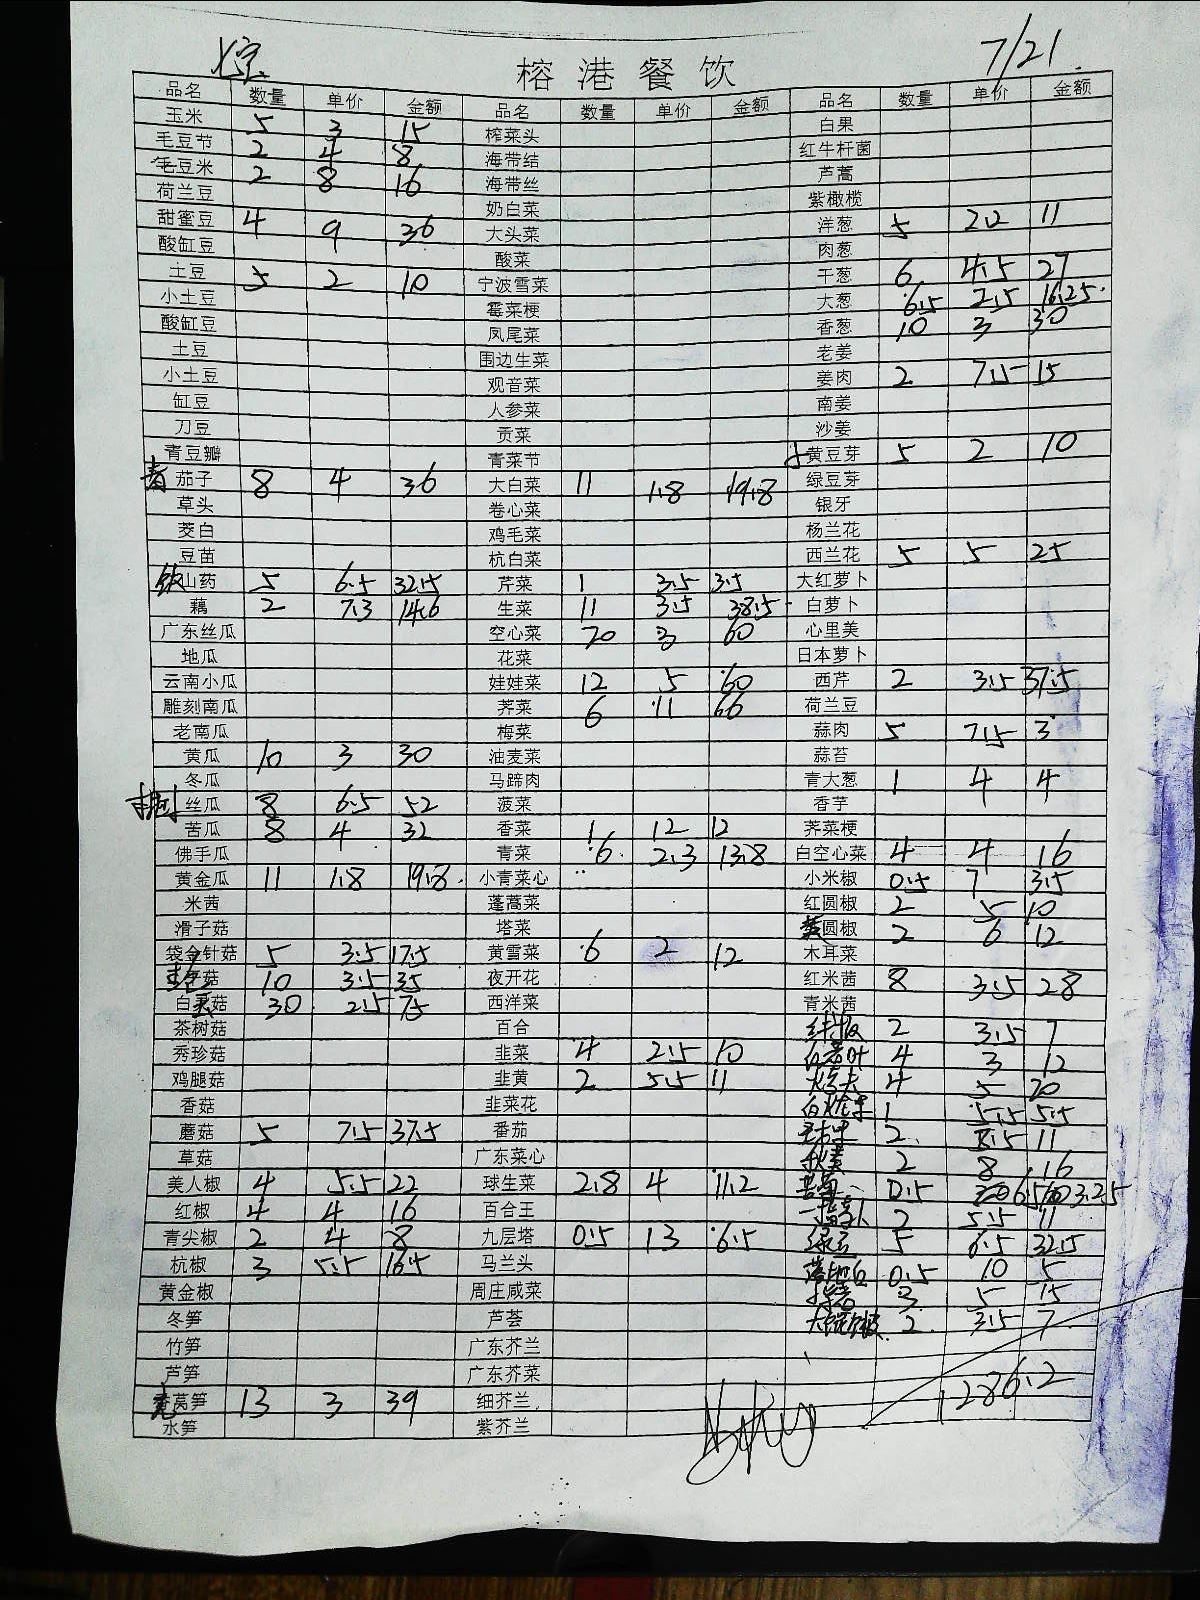 榕港餐饮 7/21
品名 数量 单价 金额 品名 数量 单价 金额 品名 数量 单价 金额
玉米 5 3 15 榨菜头 白果
毛豆节 2 4 8 海带结 红牛杆菌
毛豆米 2 8 16 海带丝 芦蒿
荷兰豆 奶白菜 紫橄榄
甜蜜豆 4 9 36 大头菜 洋葱 5 2.2 11
酸缸豆 酸菜 肉葱
土豆 5 2 10 宁波雪菜 干葱 6 4.5 27
小土豆 霉菜梗 大葱 6.5 2.5 16.25
酸缸豆 凤尾菜 香葱 10 3 30
土豆 围边生菜 老姜
小土豆 观音菜 姜肉 2 7.5 15
缸豆 人参菜 南姜
刀豆 贡菜 沙姜
青豆瓣 青菜节 黄豆芽 5 2 10
青茄子 8 4 36 大白菜 11 1.8 19.8 绿豆芽
草头 卷心菜 银牙
茭白 鸡毛菜 杨兰花
豆苗 杭白菜 西兰花 5 5 25
铁山药 5 6.5 32.5 芹菜 1 3.5 3.5 大红萝卜
藕 2 7.3 14.6 生菜 11 3.5 38.5 白萝卜
广东丝瓜 空心菜 20 3 60 心里美
地瓜 花菜 日本萝卜
云南小瓜 娃娃菜 12 5 60 西芹 2 3.5 37.5
雕刻南瓜 荠菜 6 11 66 荷兰豆
老南瓜 梅菜 蒜肉 5 7.5 3
黄瓜 10 3 30 油麦菜 蒜苔
冬瓜 马蹄肉 青大葱 1 4 4
丝瓜 8 6.5 52 菠菜 香芋
苦瓜 8 4 32 香菜 1 12 12 荠菜梗
佛手瓜 青菜 6 2.3 13.8 白空心菜 4 4 16
黄金瓜 11 1.8 19.8 小青菜心 小米椒 0.5 7 3.5
米茜 蓬蒿菜 红圆椒 2 5 10
滑子菇 塔菜 黄圆椒 2 6 12
袋金针菇 5 3.5 17.5 黄雪菜 6 2 12 木耳菜
菇 10 3.5 35 夜开花 红米茜 8 3.5 28
白灵菇 30 2.5 75 西洋菜 青米茜
茶树菇 百合 2 3.5 7
秀珍菇 韭菜 4 2.5 10 4 3 12
鸡腿菇 韭黄 2 5.5 11 4 5 20
香菇 韭菜花 1 5.5 5.5
蘑菇 5 7.5 37.5 番茄 2 5.5 11
草菇 广东菜心 秋葵 2 8 16
美人椒 4 5.5 22 球生菜 2.8 4 11.2 0.5 6.5 3.25
红椒 4 4 16 百合王 2 5.5 11
青尖椒 2 4 8 九层塔 0.5 13 6.5 绿豆 5 6.5 32.5
杭椒 3 5.5 16.5 马兰头 0.5 10 5
黄金椒 周庄咸菜 3 5 15
冬笋 芦荟 2 3.5 7
竹笋 广东芥兰
芦笋 广东芥菜
莴笋 13 3 39 细芥兰 1286.2
水笋 紫芥兰